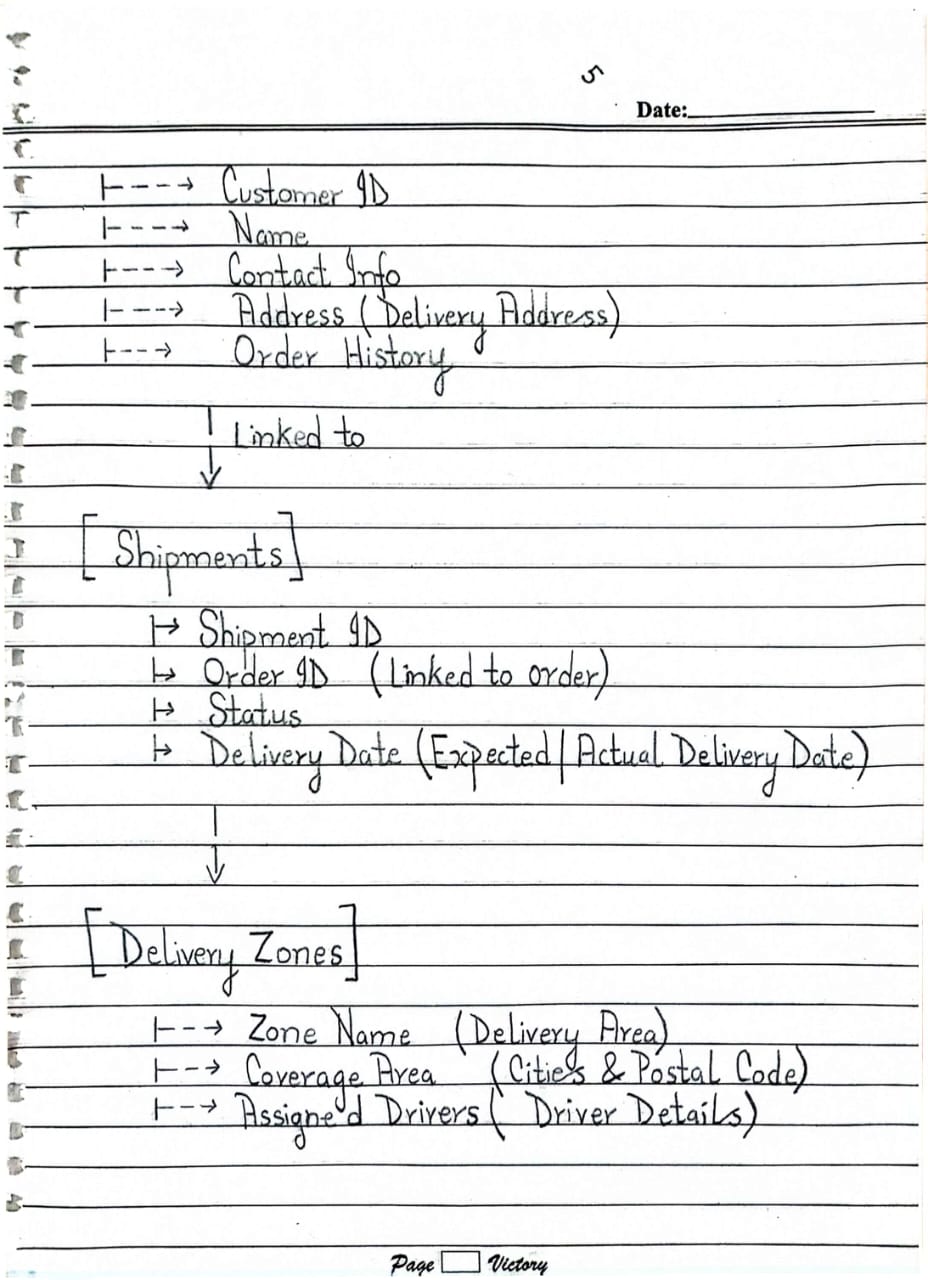 5
Date:
|----> Customer ID
|----> Name
|----> Contact Info
|----> Address (Delivery Address)
|---> Order History
| Linked to
↓
[Shipments]
|-> Shipment ID
|-> Order ID (Linked to order)
|-> Status
|-> Delivery Date (Expected | Actual Delivery Date)
|
↓
[Delivery Zones]
|--> Zone Name (Delivery Area)
|--> Coverage Area (Cities & Postal Code)
|--> Assigned Drivers ( Driver Details)
Page Victory